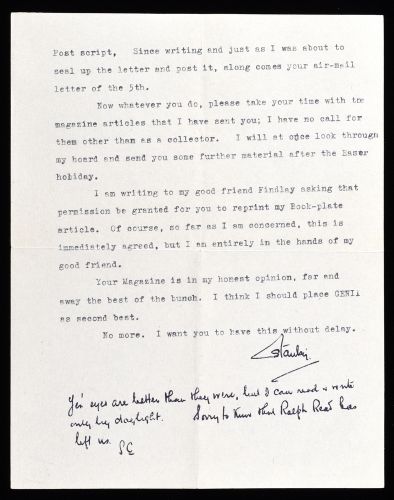 Post script,   Since writing and just as I was about to
seal up the letter and post it, along comes your air-mail
letter of the 5th.
Now whatever you do, please take your time with the
magazine articles that I have sent you; I have no call for
them other than as a collector.   I will at once look through
my hoard and send you some further material after the Easer
holiday.
I am writing to my good friend Findlay asking that
permission be granted for you to reprint my Book-plate
article.  Of course, so far as I am concerned, this is
immediately agreed, but I am entirely in the hands of my
good friend.
Your Magazine is in my honest opinion, far and
away the best of the bunch.  I think I should place GENII
as second best.
No more.  I want you to have this without delay.
Stanley.
Yes eyes are better than they were, but I can read & write
only by daylight.   Sorry to know that Ralph Read has
left us.